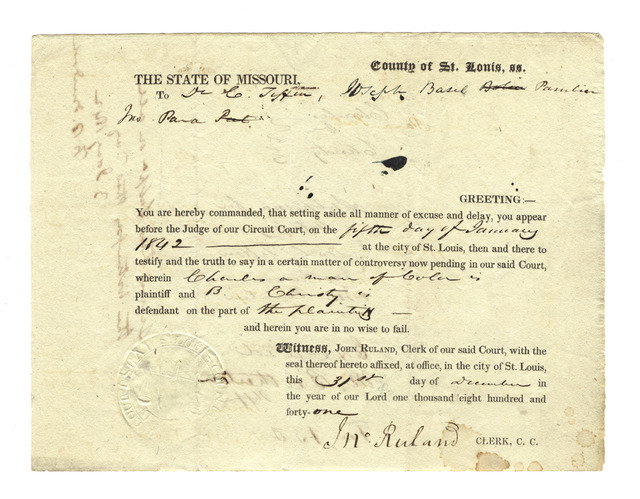 County of St. Louis, ss.
THE STATE OF MISSOURI,
To Dr C. Tiffin, Joseph Basel Pamilier
Jno Para
GREETING:—
You are hereby commanded, that setting aside all manner of excuse and delay, you appear
before the Judge of our Circuit Court, on the fifth day of January
1842 at the city of St. Louis, then and there to
testify and the truth to say in a certain matter of controversy now pending in our said Court,
wherein Charles a man of Color is
plaintiff and B. Christy is
defendant on the part of the plaintiff —
and herein you are in no wise to fail.
Witness, JOHN RULAND, Clerk of our said Court, with the
seal thereof hereto affixed, at office, in the city of St. Louis,
this 31st day of December in
the year of our Lord one thousand eight hundred and
forty-one
Jno Ruland CLERK, C. C.